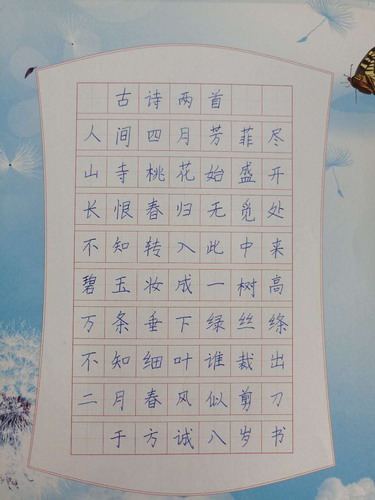 古诗两首
人间四月芳菲尽
山寺桃花始盛开
长恨春归无觅处
不知转入此中来
碧玉妆成一树高
万条垂下绿丝绦
不知细叶谁裁出
二月春风似剪刀
于方诚八岁书